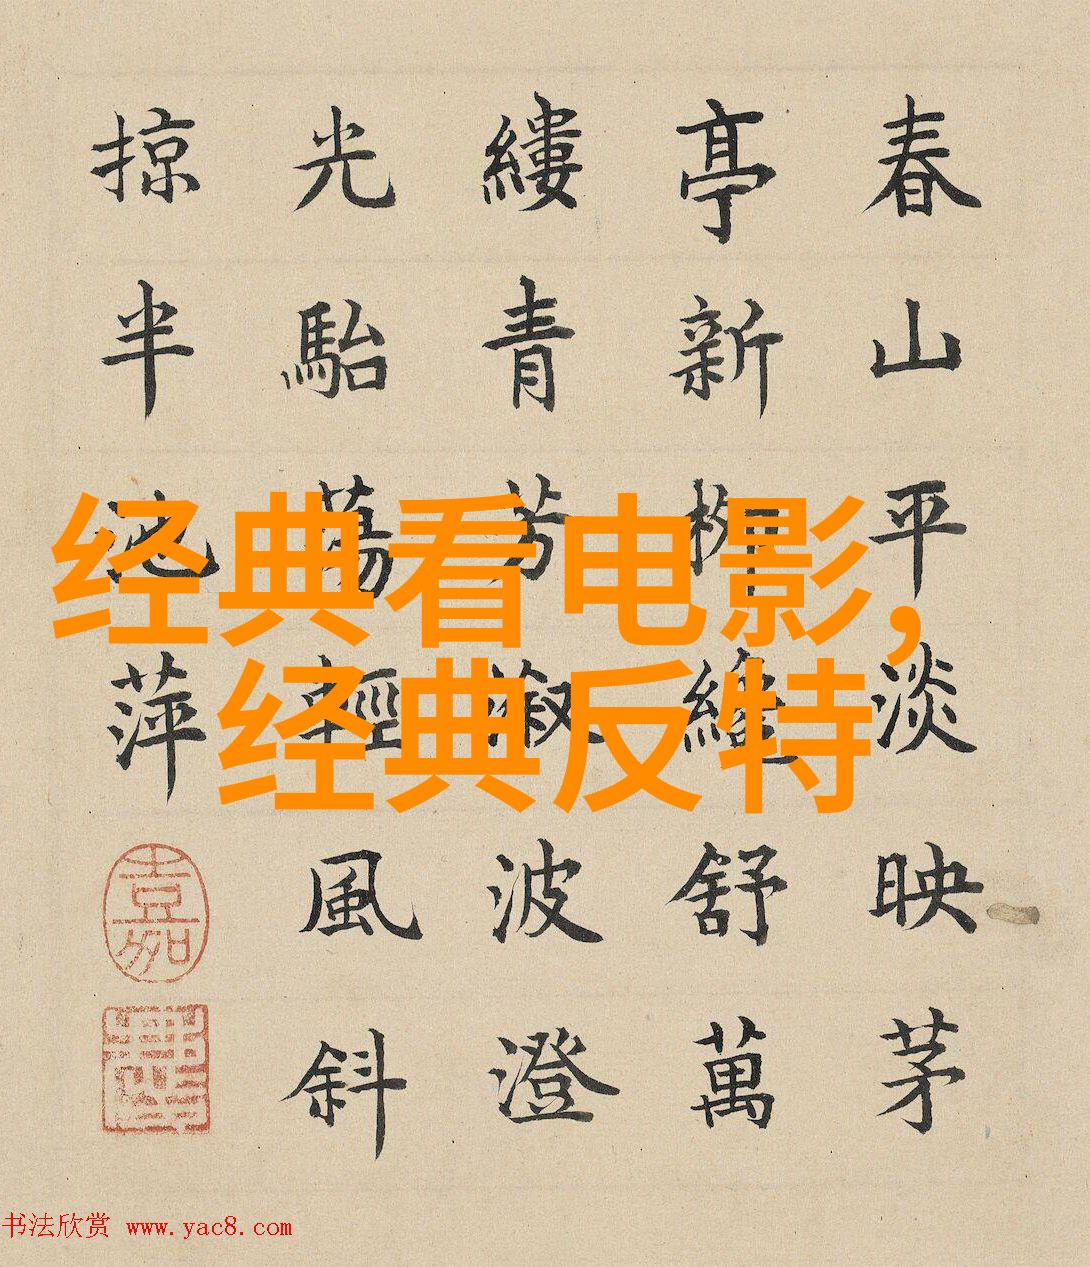 春山平淡映茅
亭新舒萬
縷青芳波澄
光駘蕩輕風斜
掠半池萍
嘉
经典看电影，
经典反特
书法欣赏 www.yac8.com